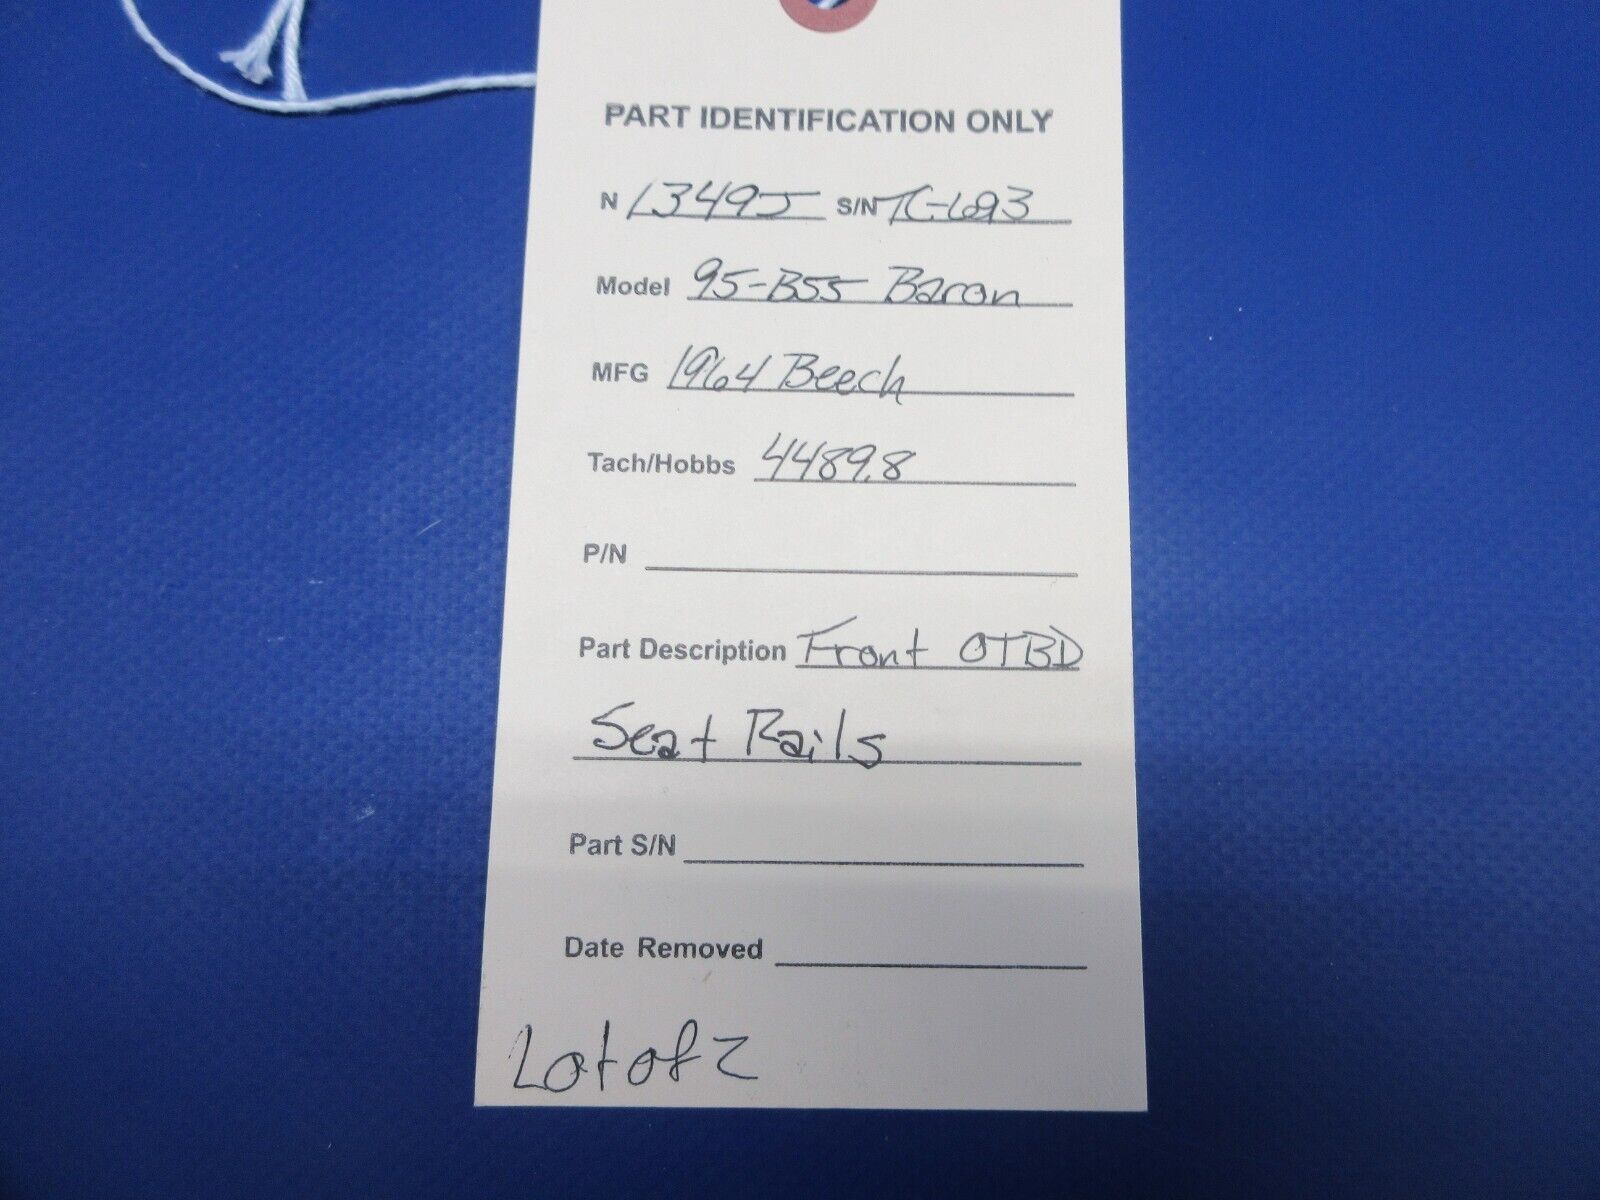 PART IDENTIFICATION ONLY
N 13495 S/N TC-693
Model 95-B55 Baron
MFG 1964 Beech
Tach/Hobbs 4489.8
P/N
Part Description Front OTBD
Seat Rails
Part S/N
Date Removed
Lot of 2